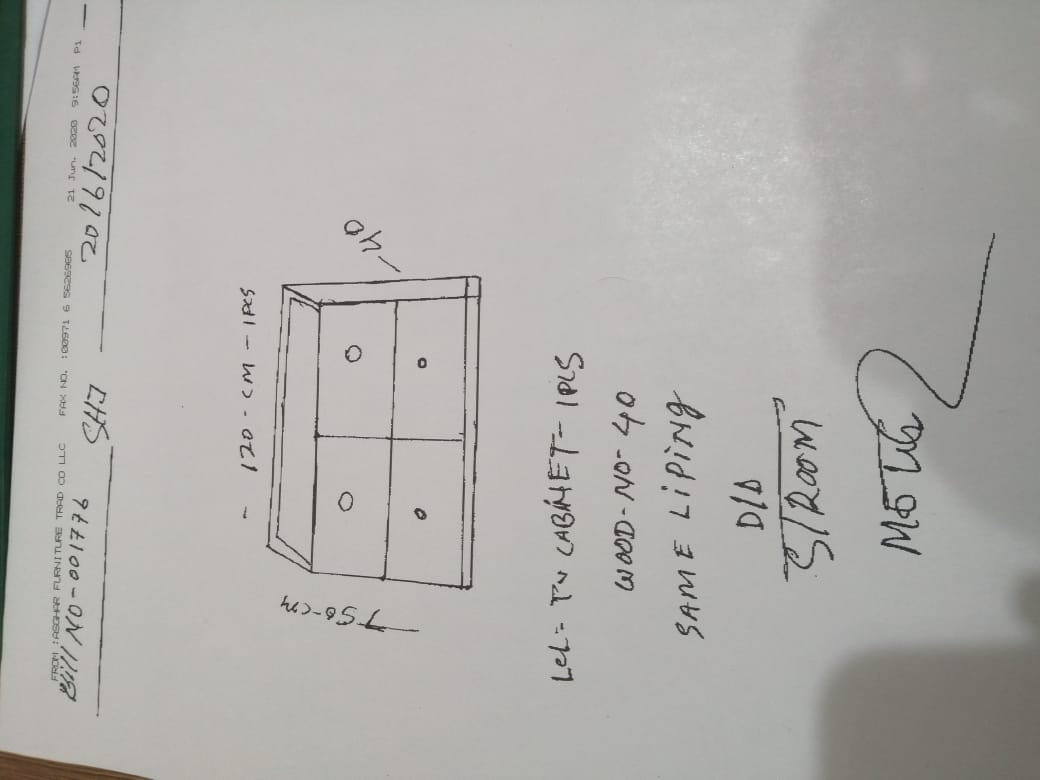 FROM :ASGHAR FURNITURE TRAD CO LLC FAX NO. :00971 6 5626985 21 Jun. 2020 9:56AM P1
Bill NO-001776 SHJ 20/6/2020
- 120-CM-1PCS
50-CM
-40
LCL= TV CABiNET-1PCS
WOOD-NO-40
SAME LiPiNg
D/D
S/ROOM